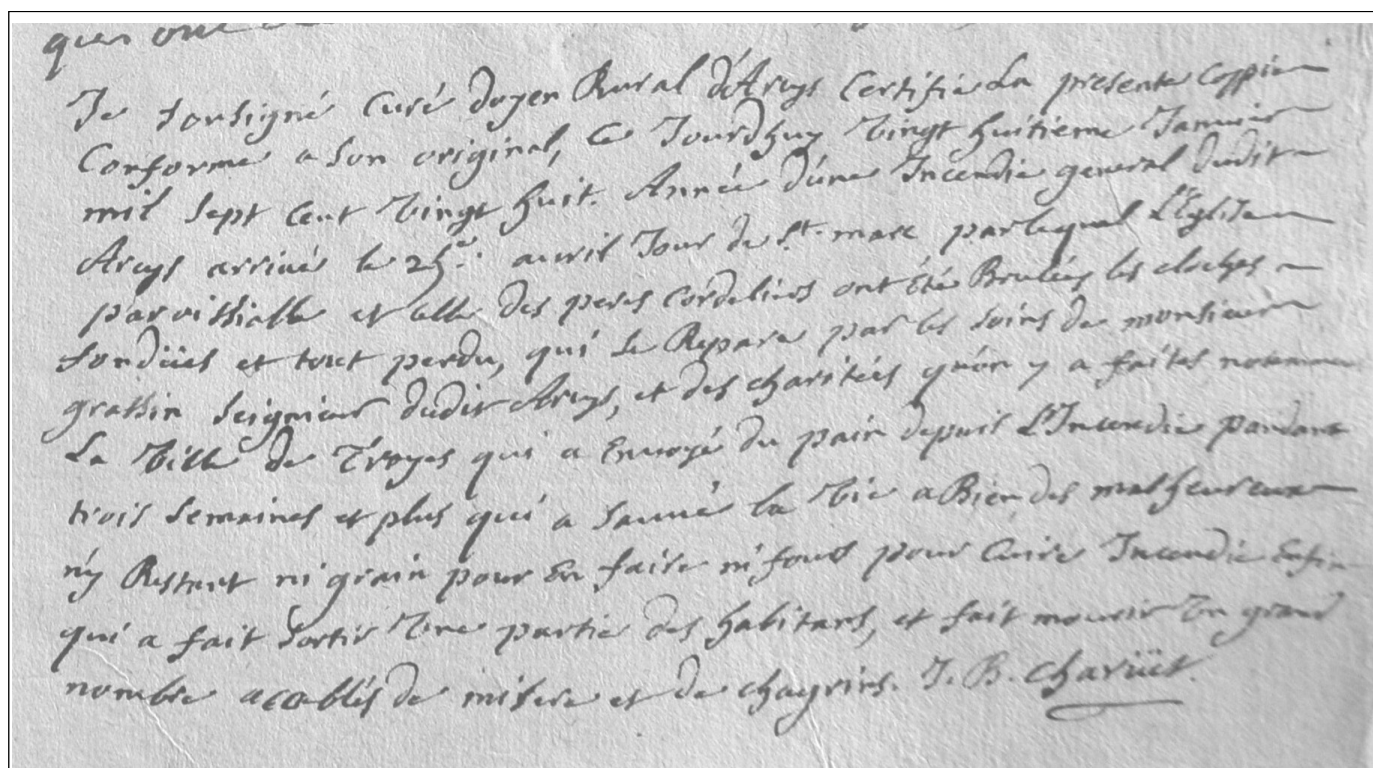 Je sousigné Curé doyen Rural d'Arcys Certifie La presente Coppie
Conforme a son original, Ce Jourdhuy vingt huitieme Janvier
mil sept Cent vingt huit. Année d'une Incendie general dudit
Arcys arrivés le 25e. avril Jour de St. marc parlequel L'Eglise
paroissialle et celle des peres Cordeliers ont été Brulées les cloches
fondües et tout perdu, qui se Repare par les soins de monsieur
grassin seigneur dudit Arcys, et des charitées qu'on y a faites notamment
La ville de Troyes qui a Envoyé du pain depuis L'Incendie pandant
trois semaines et plus qui a sauvé la vie a Bien des malheureux
n'y Restant ni grain pour En faire ni fours pour Cuire Incendie Enfin
qui a fait sortir une partie des habitans, et fait mourir un grand
nombre acablés de misere et de chagrins. J. B. Charüet.